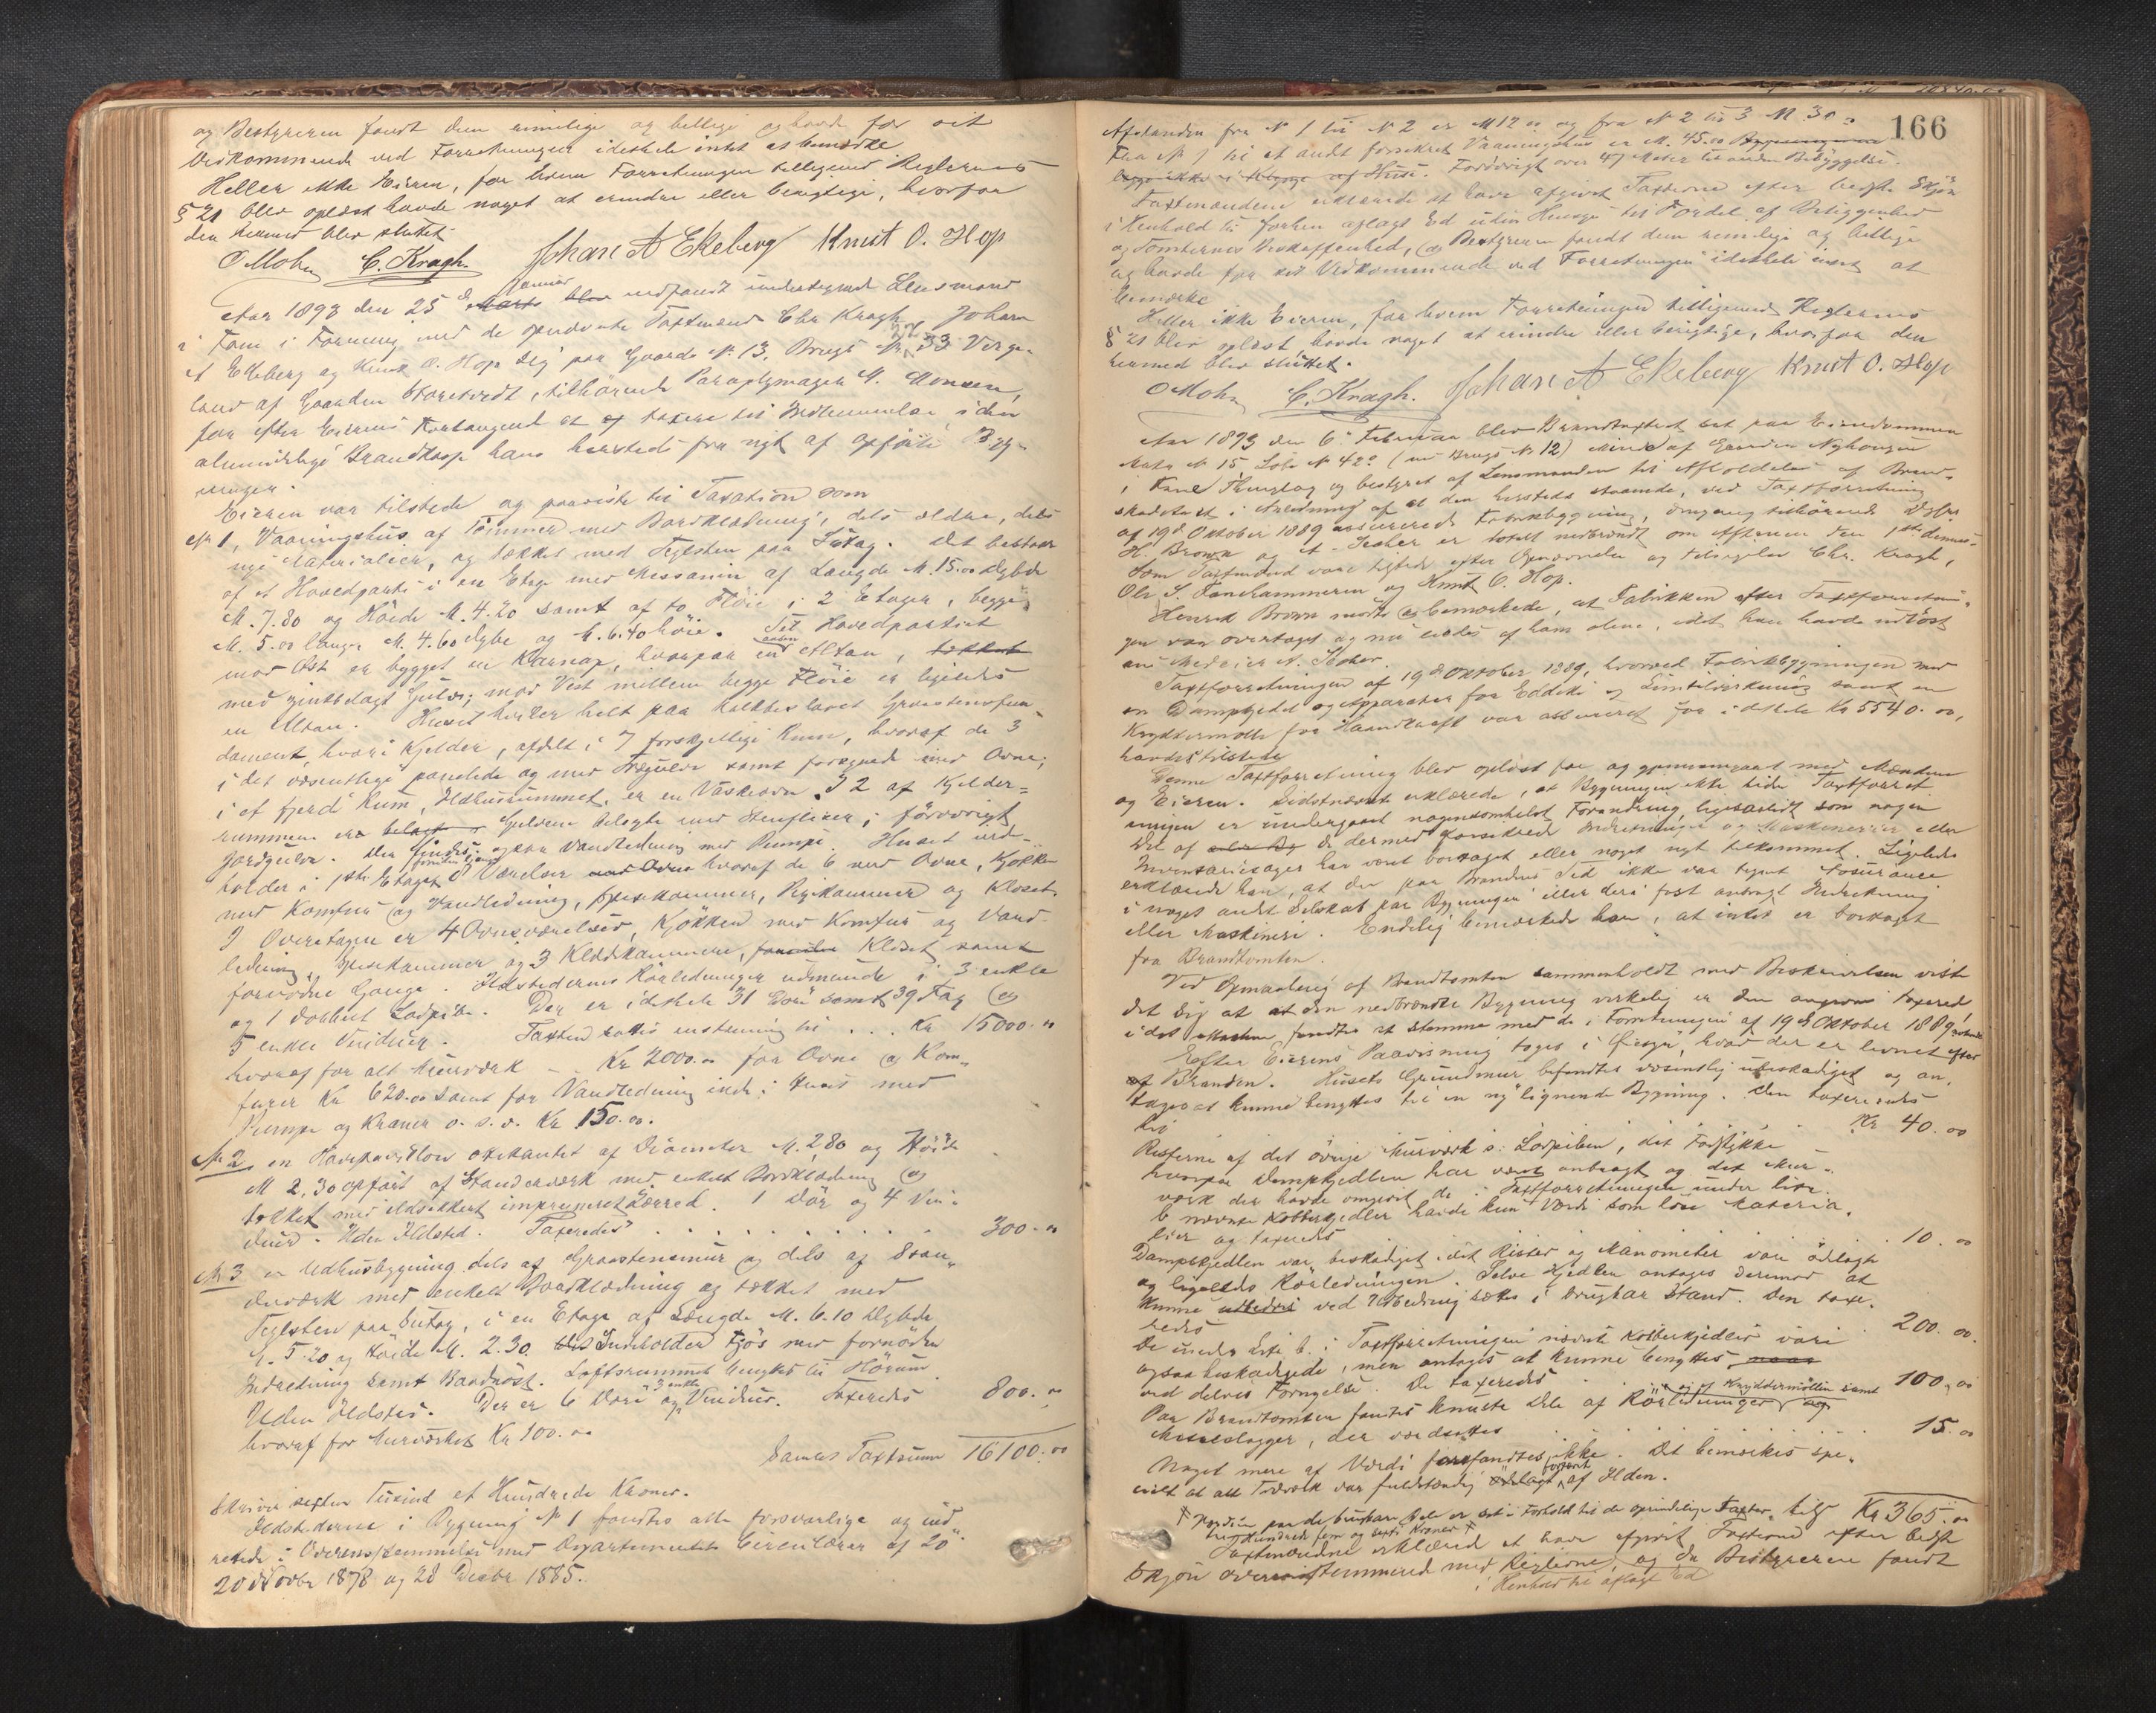 og Bestyreren fandt dem rimelige og billige og havde for sit
Vedkommende ved Forretningen idethele intet at bemærke
Heller ikke Eieren, for hvem Forretningen tilligemed Reglernes
§ 21 blev oplæst havde noget at erindre eller berigtige, hvorfor
den hermed blev sluttet.
O Mohn C. Kragh. Johan A Ekeberg Knut O. Hop
Januar
Aar 1893 den 25 de Marts blev indfandt undertegnede Lensmand
i Fane i Forening med de opnævnte Taxtmænd Chr Kragh, Johan
A Ekeberg og Knut O. Hop sig paa Gaards No 13, Brugs No 33
land af Gaarden Storetvedt, tilhørende Paraplymager M. Monsen,
for efter Eierens Forlangende at taxere til Indlemmelse i den
almindelige Brandkasse hans hersteds fra nyt af opførte Byg-
ninger.
Eieren var tilstede og paaviste til Taxation som
No 1, Vaaningshus af Tømmer med Bordklædning, dels ældre, dels
nye Materialier, og tækket med Teglsten paa Sutag. Det bestaar
af et Hovedparti i en Etage med Messanin af Længde M. 15.00 Dybde
M. 7.80 og Høide M. 4.20 samt af to Fløie i 2 Etager, begge
M. 5.00 lange M. 4.60 dybe og M. 6.40 høie. Til Hovedpartiet
mod Øst er bygget en Karnap, hvorpaa en aaben Altan, tækket
med zinkbelagt Gulv; mod Vest mellem begge Fløie er ligeledes
en Altan. Huset hviler helt paa kalkslaaet Graastensfun-
dament, hvori Kjelder, afdelt i 7 forskjellige Rum, hvoraf de 3
i det væsentlige panelede og med Trægulve samt forsynede med Ovne;
i et fjerde Rum, Ildhusrummet, er en Vaskeovn. I 2 af Kjelder-
rummene ere belagt Gulvene belagte med Stenfliser, i førøvrigt
Jordgulve. Der findes ogsaa Vandledning med Pumpe. Huset inde-
holder i 1ste Etage foruden Gang 8 Værelser med Ovne hvoraf de 6 med Ovne, Kjøkken
med Komfur og Vandledning, Spisekammer, Pigekammer og Kloset.
I Overetagen er 4 Ovnsværelser, Kjøkken med Komfur og Vand-
ledning, Spisekammer og 3 Klædskammere, Kloset samt
fornødne Gange. Ildstedernes Rørledninger udmunde i 3 enkle
og 1 dobbelt Ladpibe. Der er idethele 31 Døre samt 39 Fag og
5 enkle Vinduer. Taxten sattes enstemmig til . . . Kr 15000.00
hvoraf for alt Murværk - Kr. 2000.00 for Ovne og Kom-
furer Kr 620.00 samt for Vandledning inde i Huset med
Pumpe og Kraner o. s. v. Kr. 150.00.
No 2, en Havepavillon ottekantet af Diameter M. 2,80 og Høide
M 2.30 opført af Standerværk med enkelt Bordklædning og
tækket med ildsikkert imprægneret Lærred. 1 Dør og 4 Vin-
duer. Uden Ildsted. Taxeredes . . . . . 300.00
No 3 en Udhusbygning dels af Graastensmur og dels af Stan-
derværk med enkelt Bordklædning og tækket med
Teglsten paa Sutag, i en Etage af Længde M. 6.10 Dybde
M. 5.20 og Høide M. 2.30. Indeholder Fjøs med fornøden
Indretning samt Baandrøst. Loftsrummet benyttes til Hørum
Uden Ildsted. Der er 6 Døre og 3 enkle Vinduer. Taxeredes 800.00
hvoraf for Murværket Kr 100.00
Samlet Taxtsum 16100.00
Skriver sexten Tusind et Hundrede Kroner.
Ildstederne i Bygning No 1 fandtes alle forsvarlige og ind-
rettede i Overensstemmelse med Departementets Circulærer af 20
20 Novbr 1878 og 28 Decbr 1885.
166
Afstanden fra No 1 til No 2 er M 12.00 og fra No 2 til 3 M. 30.00
Fra No 1 til et andet forsikret Vaaningshus er M. 45.00 Bygningerne
ligge ikke i Klynge af Huse. Forøvrigt over 47 Meter til anden Bebyggelse.
Taxtmændene erklærede at have afgivet Taxterne efter bedste Skjøn
i Henhold til forhen aflagt Ed uden Hensyn til Fordel af Beliggenhed
og Tomternes Beskaffenhed, og Bestyreren fandt dem rimelige og billige
og havde for sit Vedkommende ved Forretningen idethele intet at
bemærke
Heller ikke Eieren, for hvem Forretningen tilligemed Reglernes
§ 21 blev oplæst havde noget at erindre eller berigtige, hvorfor den
hermed blev sluttet.
O Mohn C. Kragh. Johan A Ekeberg Knut O. Hop
Aar 1893 den 6te Februar blev Brandtaxtret sat paa Eiendommen
Matr No 15 Løbe No 42 c (nu Brugs No 12) Minde af Gaarden Nyhougen
i Fane Thinglag og bestyret af Lensmanden til Afholdelse af Brand-
skadetaxt i Anledning af at den hersteds staaende, ved Taxtforretning
af 19de Oktober 1889 assurerede Fabrikbygning, dengang tilhørende
H. Brown og A. er totalt nedbrændt om Aftenen den 1ste dennes.
Som Taxtmænd vare tilstede efter Opnævnelse og Tilsigelse Chr. Kragh,
Ole J. Fanehammeren og Knut O. Hop.
Henrik Brown mødte og bemærkede, at Fabrikken efter Taxtforretnin-
gen var overtaget og nu eiedes af ham alene, idet han havde udløst
sin Medeier A.
Taxtforretningen af 19de Oktober 1889, hvorved Fabrikbygningen med
en Dampkjedel og Apparater for Eddike og Limtilvirkning samt en
Kryddermølle for Haandkraft var assureret for idethele Kr 5540.00,
havdes tilstede
Denne Taxtforretning blev oplæst for og gjennemgaaet med Mændene
og Eieren. Sidstnævnte erklærede, at Bygningen ikke siden Taxtforret-
ningen er undergaaet nogensomhelst Forandring, ligesaalidt som nogen
Del af de dermed forsikrede Indretninger og Maskinerier eller
Inventariesager har været borttaget eller noget nyt tilkommet. Ligeledes
erklærede han, at der paa Brandens Tid ikke var tegnet Assurance
i noget andet Selskab paa Bygningen eller deri fast anbragt Indretning
eller Maskineri. Endelig bemærkede han, at intet er borttaget
fra Brandtomten.
Ved Opmaaling af Brandtomten sammenholdt med Beskrivelsen viste
det sig at den nedbrændte Bygning virkelig er den taxerede,
i det Maalene fandtes at stemme med de i Forretningen af 19de Oktober 1889 anførte
Efter Eierens Paavisning toges i Øiesyn, hvad der er levnet efter
Branden. Husets Grundmur befandtes væsentlig ubeskadiget og an-
tages at kunne benyttes til en ny lignende Bygning. Den taxeredes
til Kr 40.00
Resterne af det øvrige Murværk o: Ladpiben, det Fodstykke
hvorpaa Dampkjedlen har været anbragt og det Mur-
værk der havde omgivet de i Taxtforretningen under litr.
b nævnte Kobberkjedler havde kun Værdi som løse Materia-
lier og taxeredes . . . 10.00
Dampkjedlen var beskadiget idet Rister og Manometer vare ødelagte
og ligeledes Rørledningen. Selve Kjedlen antages derimod at
kunne udbedres ved Udbedring sættes i brugbar Stand. Den taxe-
redes . . . 200.00
De under Litr b. i Taxtforretningen nævnte Kobberkjedler vare
ogsaa beskadigede, men antages at kunne benyttes,
ved delvis Fornyelse. De taxeredes . . . 100.00
Paa Brandtomten fandtes knuste Dele af Rørledninger og af Kryddermøllen samt
, der værdsattes . . . 15.00
Noget mere af Værdi forefandtes ikke. Det bemærkes spe-
cielt at alt Træværk var fuldstændig ødelagt fortæret af Ilden.
Kr 365.00
Værdien paa de brugbare Dele er sat i Forhold til de oprindelige Taxter.
trehundrede fem og sexti Kroner
Taxtmændene erklærede at have afgivet Taxterne efter bedste
Skjøn overensstemmende med Reglerne, og da Bestyreren fandt
i Henhold til aflagt Ed